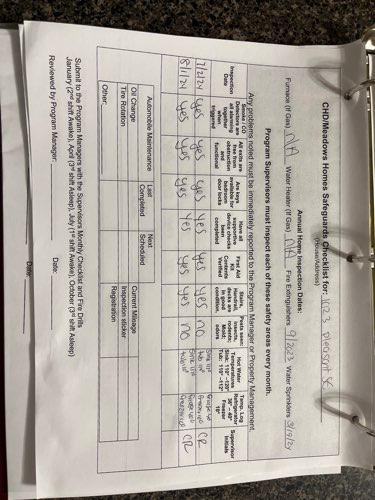 CHD/Meadows Homes Safeguards Checklist for: 1023 pleasant st
(House/Address)
Annual Home Inspection Dates:
Furnace (If Gas) N/A Water Heater (If Gas) N/A Fire Extinguishers 9/2023 Water Sprinklers 3/19/24
Program Supervisors must inspect each of these safety areas every month.
Any problems noted must be immediately reported to the Program Manager or Property Management.
Inspection Date
Smoke / CO Detectors are all alarming together when triggered
All exits are free from obstruction and functional
Are Keys available for bedroom door locks
Have all supportive device logs been completed
First Aid Kit Contents Verified
Stairs, Handrail, decks are in good condition
Pests seen: insects, rodents;
Hot Water Temperatures Sink: 110°-130° Tub: 110°-112°
Temp. Log Refrigerator 36°-40° Freezer 18°
Supervisor Initials
7/2/24 yes yes yes yes yes yes no CR
8/1/24 yes yes yes yes yes yes no CR
Automobile Maintenance Last Completed Next Scheduled
Oil Change Current Mileage
Tire Rotation Inspection sticker
Other: Registration
Submit to the Program Managers with the Supervisors Monthly Checklist and Fire Drills
January (2nd shift Awake), April (3rd shift Asleep), July (1st shift Awake), October (3rd shift Asleep)
Reviewed by Program Manager: Date:
Date: